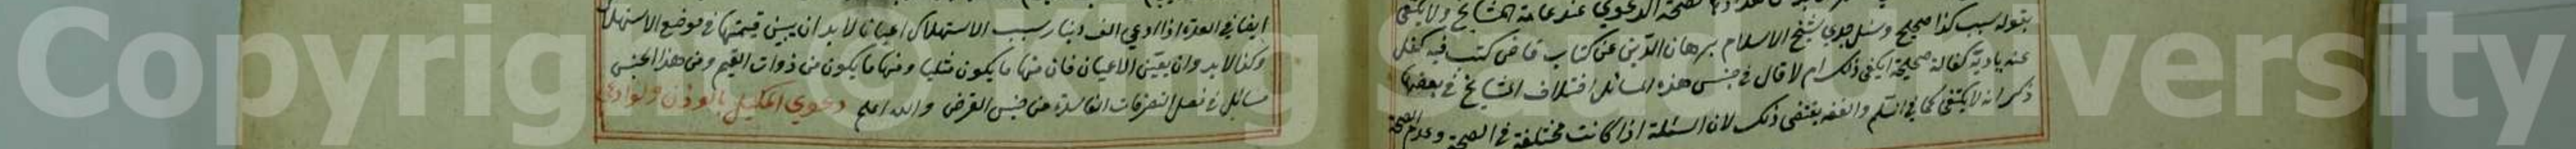 لصحة الدعوي عند عامة المشايخ ولا يكتفى
بقوله بسبب كذا صحيح وسئل جدي شيخ الاسلام برهان الدين عن كتاب قاض كتب فيه كفل
عنه بادنه كفالة صحيحة ايكفى ذلك ام لا قال في جنس هذه المسائل اختلاف المشايخ في بعضها
ذكر انه لا يكتفى كما في السلم والفقه يقتضى ذلك لان المسئلة اذا كانت مختلفة في الصحة وعدم الصحة
ايضا في العدة اذا ادعي الف دينار بسبب الاستهلاك اعيانا لا بد ان يبين قيمتها في موضع الاستهلاك
وكذا لا بد وان يعين الاعيان فان منها ما يكون مثليا ومنها ما يكون من ذوات القيم ومن هذا الجنس
مسائل في فصل التصرفات الفاسدة من جنس القرض والله اعلم دعوي المكيل بالوزن ولو ادعي
Copyright © King Saud University